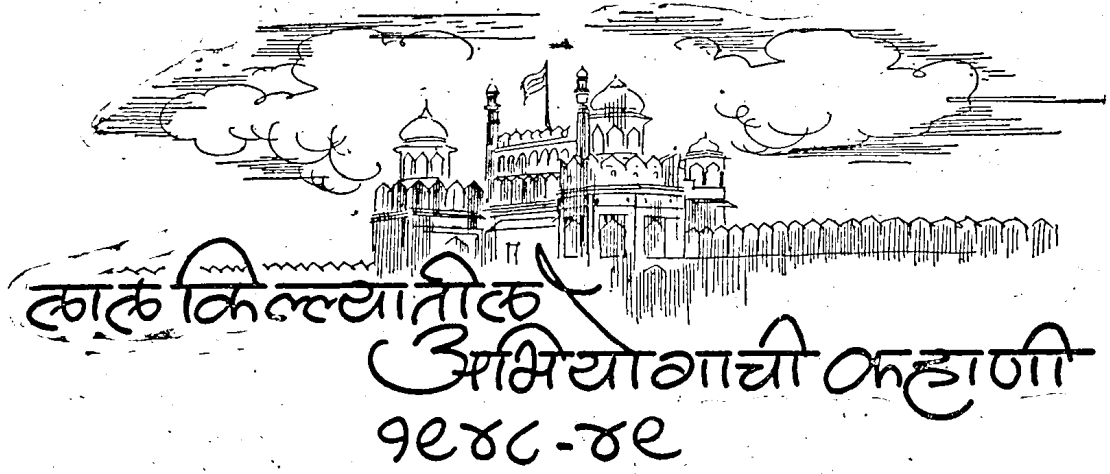 लाल किल्ल्यातील
अभियोगाची कहाणी
१९४८-४९